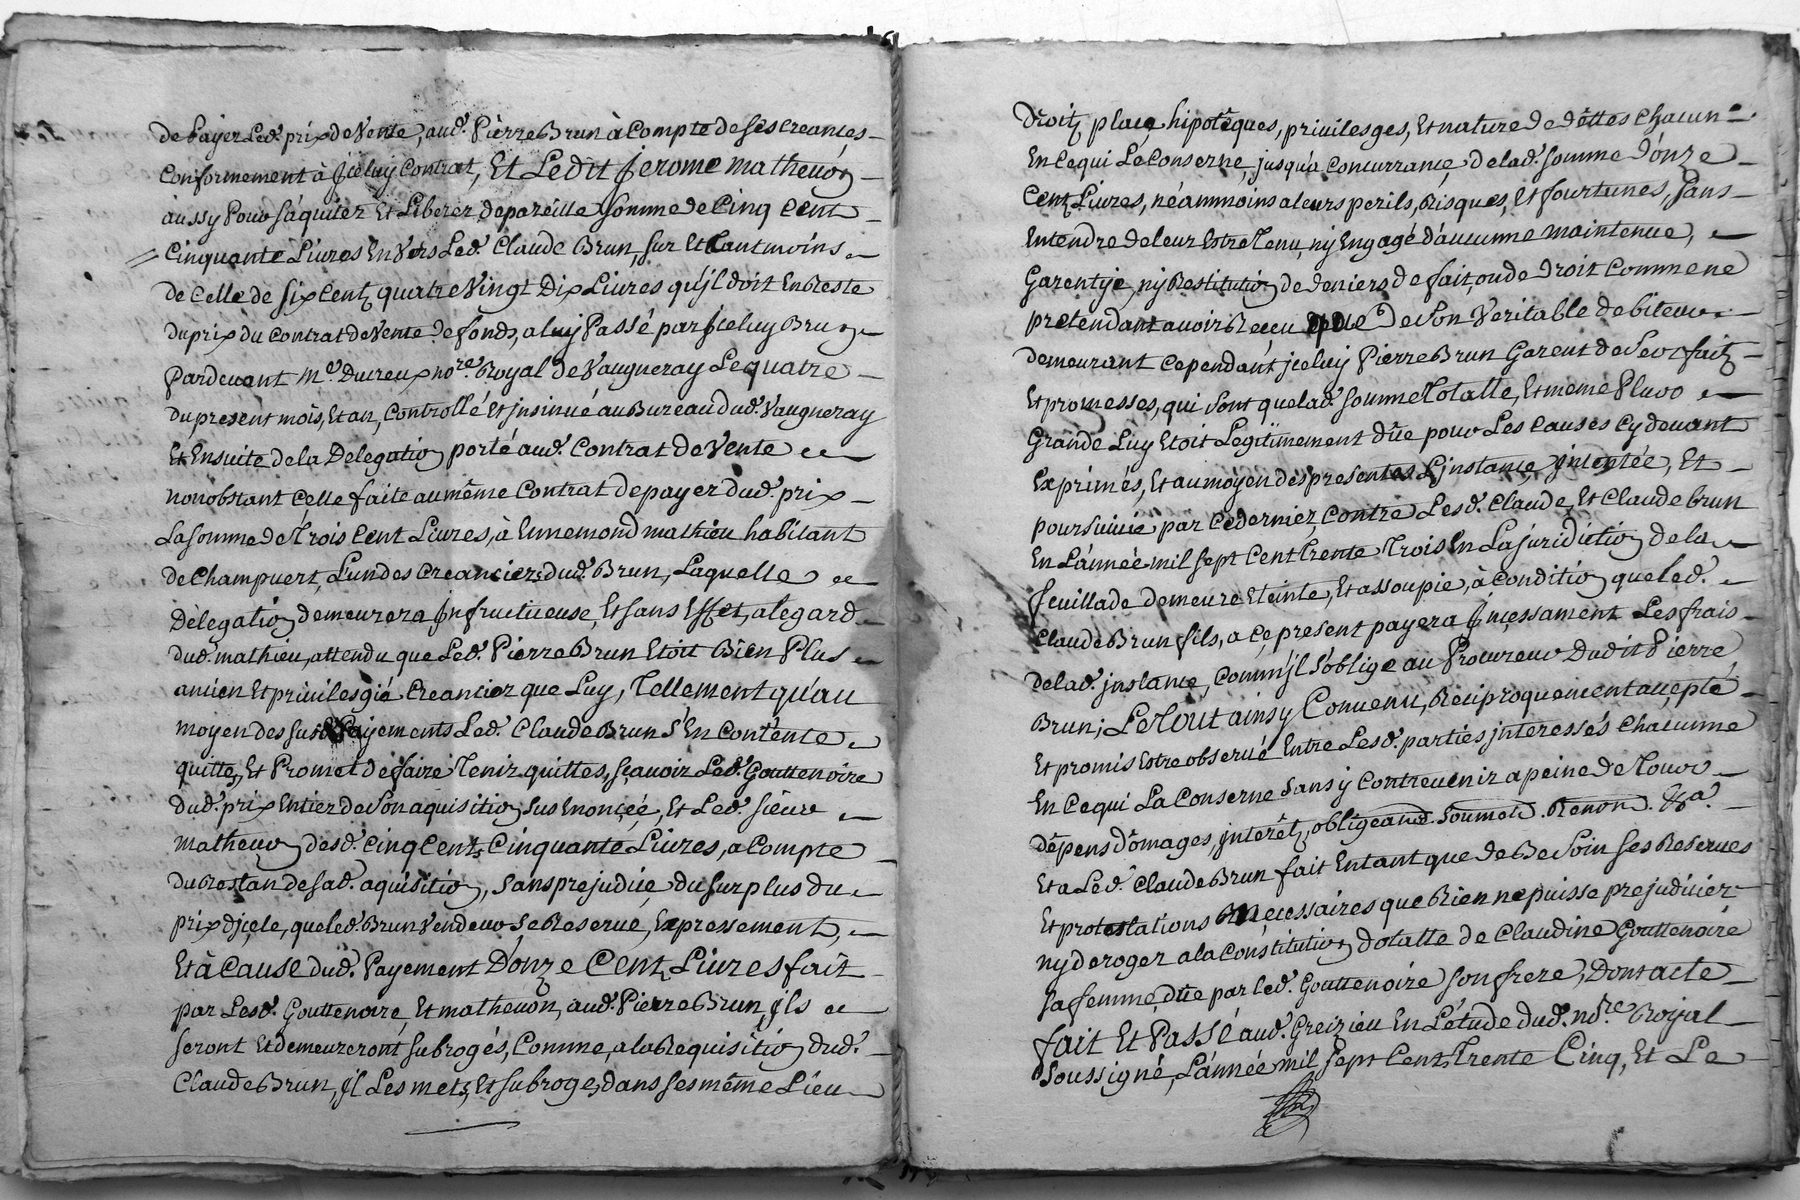 de payer led. prix de Vente, aud. Pierre Brun à compte de ses creançes
Conformement à jceluy Contrat, Et Ledit Jerome matheuon
aussy Pour s'aquiter Et Liberer de pareille somme de Cinq Cent
Cinquante Livres Envers Led. Claude Brun, sur Et tant moins
de Celle de six Centz quatre Vingt Dix Livres qu'jl doit En Reste
du prix du Contrat de Vente de fondz, a luy Passé par jceluy Brun
Pardevant Me. Ducreux nore. Royal de Vaugneray Le quatre
du present mois, Et an, Controllé Et jnsinué au Bureau dud. Vaugneray
Et Ensuite de la Delegation porté aud. Contrat de Vente
nonobstant Celle faite au même Contrat de payer dud. prix
La somme de Trois Cent Livres, à Ennemond mathieu habitant
de Champvert, L'un des Creanciers dud. Brun, Laquelle
Délegation demeurera Infructueuse, Et sans Effet, a legard
dud. mathieu, attendu que Led. Pierre Brun Etoit Bien Plus
ancien Et privilesgié Creancier que Luy, Tellement qu'au
moyen des susd. Payements Led. Claude Brun S'En Contente
quitte, Et Promet de faire Tenir quittes, sçavoir Led. Gouttenoire
dud. prix Entier de Son aquisition sus Enonçéé, Et Led. sieur
matheuon desd. Cinq Centz Cinquante Livres, a Compte
du Restan de sad. aquisition, sans prejudice du surplus du
prix d'jcele, que led. Brun Vendeur se Reserve, Expressement,
Et à Cause dud. Payement D'onze Centz Livres fait
par Lesd. Gouttenoire, Et matheuon, aud. Pierre Brun, jls
seront Et demeureront subrogés, Comme, a la Requisition dud.
Claude Brun, jl Les metz, Et subroge, dans ses même Lieu
Droitz, place hipotêques, privilesges, Et nature de dêttes Chacun
En Ce qui Le Conserne, jusqu'a Concurrance, de lad. somme D'onze
Centz Livres, néammoins a leurs perils, Risques, Et fourtunes, sans
Entendre de leur Estre Tenu, ny Engagé d'aucunne maintenue,
Garentije, ny Restitution de deniers de fait, ou de Droit Comme ne
pretendant avoir Reçeu que de son Veritable debiteur
demeurant Cependant jceluy Pierre Brun Garent de Ses faitz
Et promesses, qui sont que lad. somme Totalle, Et meme Pluss
Grande Luy Etoit Legitimement dûe pour Les Causes cy devant
Exprimés, Et au moyen des presentes L'jnstançe jntentée, Et
poursuivie par Ce dernier Contre Lesd. Claude, Et Claude brun
En L'année mil sept Cent trente Trois En La juridiction de la
feuillade demeure Eteinte, Et assoupie, à Condition que led.
Claude Brun fils, a Ce present payera Jnçessament Les frais
de lad. jnstance, Comm'jl s'oblige au Procureur Dudit Pierre
Brun; Le Tout ainsy Convenu, Reciproquement acçepté
Et promis Estre observé Entre Lesd. parties jnteressés Chacunne
En Ce qui La Conserne Sans y Contrevenir a peine de Tous
dépens dômages, jnterêtz, obligeand. Soumetd. Renond. &a.
Et a Led. Claude Brun fait Entant que de Besoin ses Reserves
Et protestations Neçessaires que Rien ne puisse prejudicier
ny deroger a la Constitution dotalle de Claudine Gouttenoire
sa femme, dûe par led. Gouttenoire son frere, Dont acte
fait Et Passé aud. Greizieu En L'étude dud. nore. Royal
Soussigné, L'année mil sept Centz Trente Cinq, Et Le